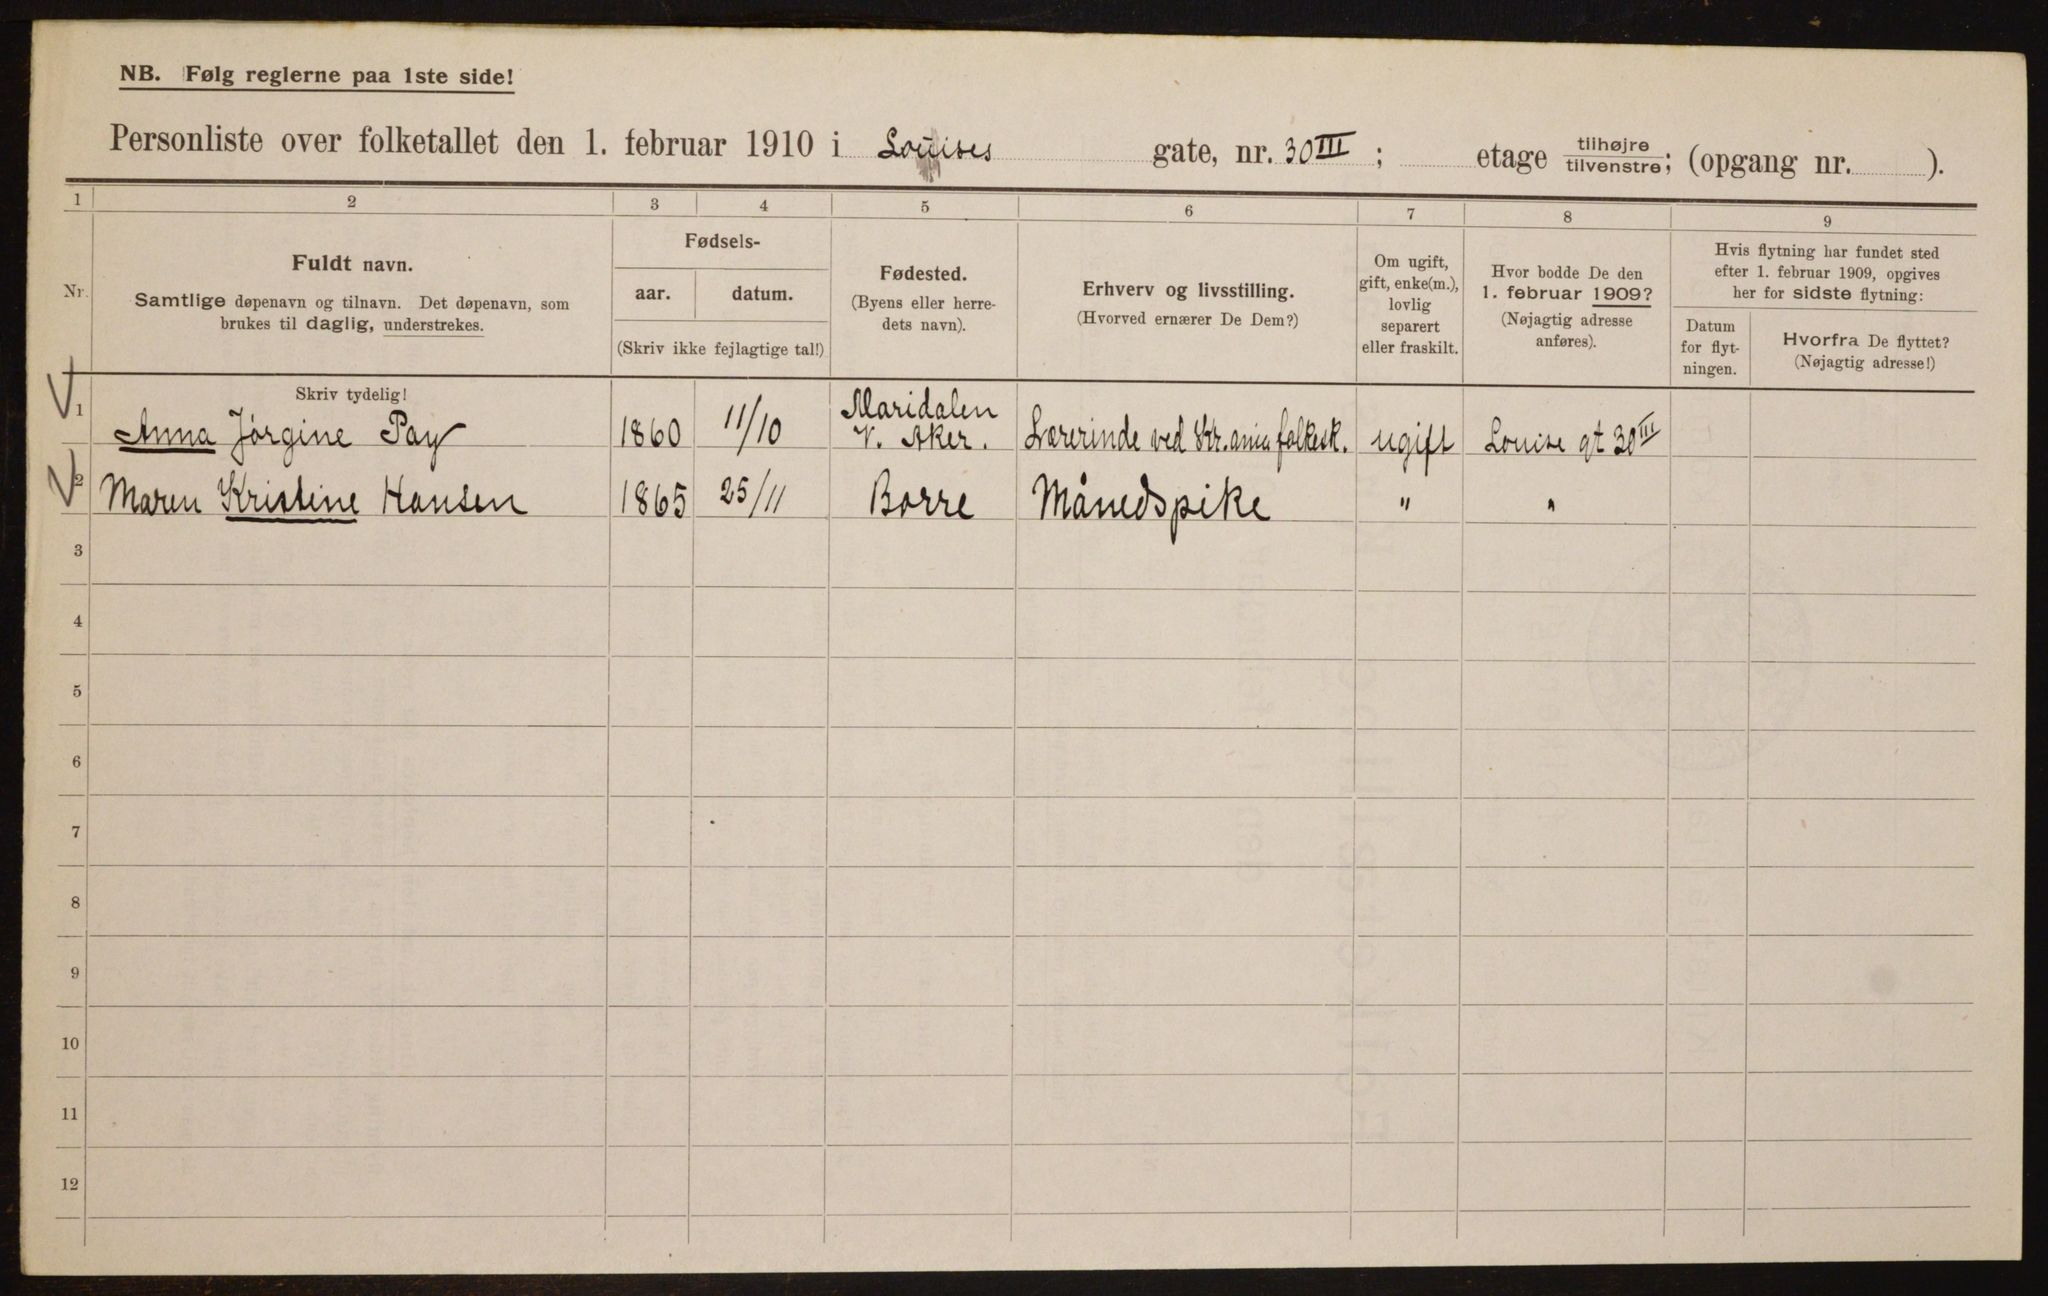 NB. Følg reglerne paa 1ste side!
Personliste over folketallet den 1. februar 1910 i Louises gate, nr. 30 III; etage tilhøjre/tilvenstre; (opgang nr. ).
1 2 3 4 5 6 7 8 9
Nr.
Fuldt navn.
Samtlige døpenavn og tilnavn. Det døpenavn, som
brukes til daglig, understrekes.
Fødsels-
aar. datum.
(Skriv ikke fejlagtige tal!)
Fødested.
(Byens eller herre-
dets navn).
Erhverv og livsstilling.
(Hvorved ernærer De Dem?)
Om ugift,
gift, enke(m.),
lovlig
separert
eller fraskilt.
Hvor bodde De den
1. februar 1909?
(Nøjagtig adresse
anføres).
Hvis flytning har fundet sted
efter 1. februar 1909, opgives
her for sidste flytning:
Datum
for flyt-
ningen.
Hvorfra De flyttet?
(Nøjagtig adresse!)
Skriv tydelig!
1 Anna Jørgine Pay 1860 11/10 Maridalen
V. Aker. Lærerinde ved Kr.ania folkesk. ugift Louise gt 30 III
2 Maren Kristine Hansen 1865 25/11 Borre Månedspike " "
3
4
5
6
7
8
9
10
11
12